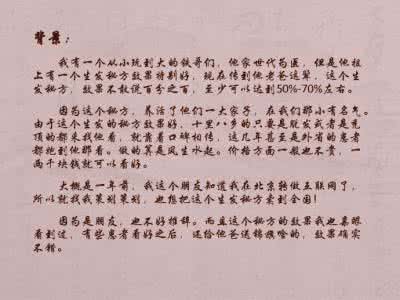 背景：
我有一个从小玩到大的铁哥们，他家世代为医，但是他祖
上有一个生发秘方效果特别好，现在传到他老爸这辈，这个生
发秘方，效果不敢说百分之百，至少可以达到50%-70%左右。
因为这个秘方，养活了他们一大家子，在我们那小有名气。
由于这个生发的秘方效果好，十里八乡的只要是脱发或者是秃
顶的都来找他看，就靠着口碑相传，这几年甚至是外省的患者
都跑到他那看。做的算是风生水起。价格方面一般也不贵，一
两千块钱就可以看好。
大概是一年前，我这个朋友知道我在北京转做互联网了，
所以就找我策划策划，也想把这个生发秘方卖到全国！
因为是朋友，也不好推辞。而且这个秘方的效果我也亲眼
看到过，有些患者看好之后，还给他爸送锦旗啥的，效果确实
不错。